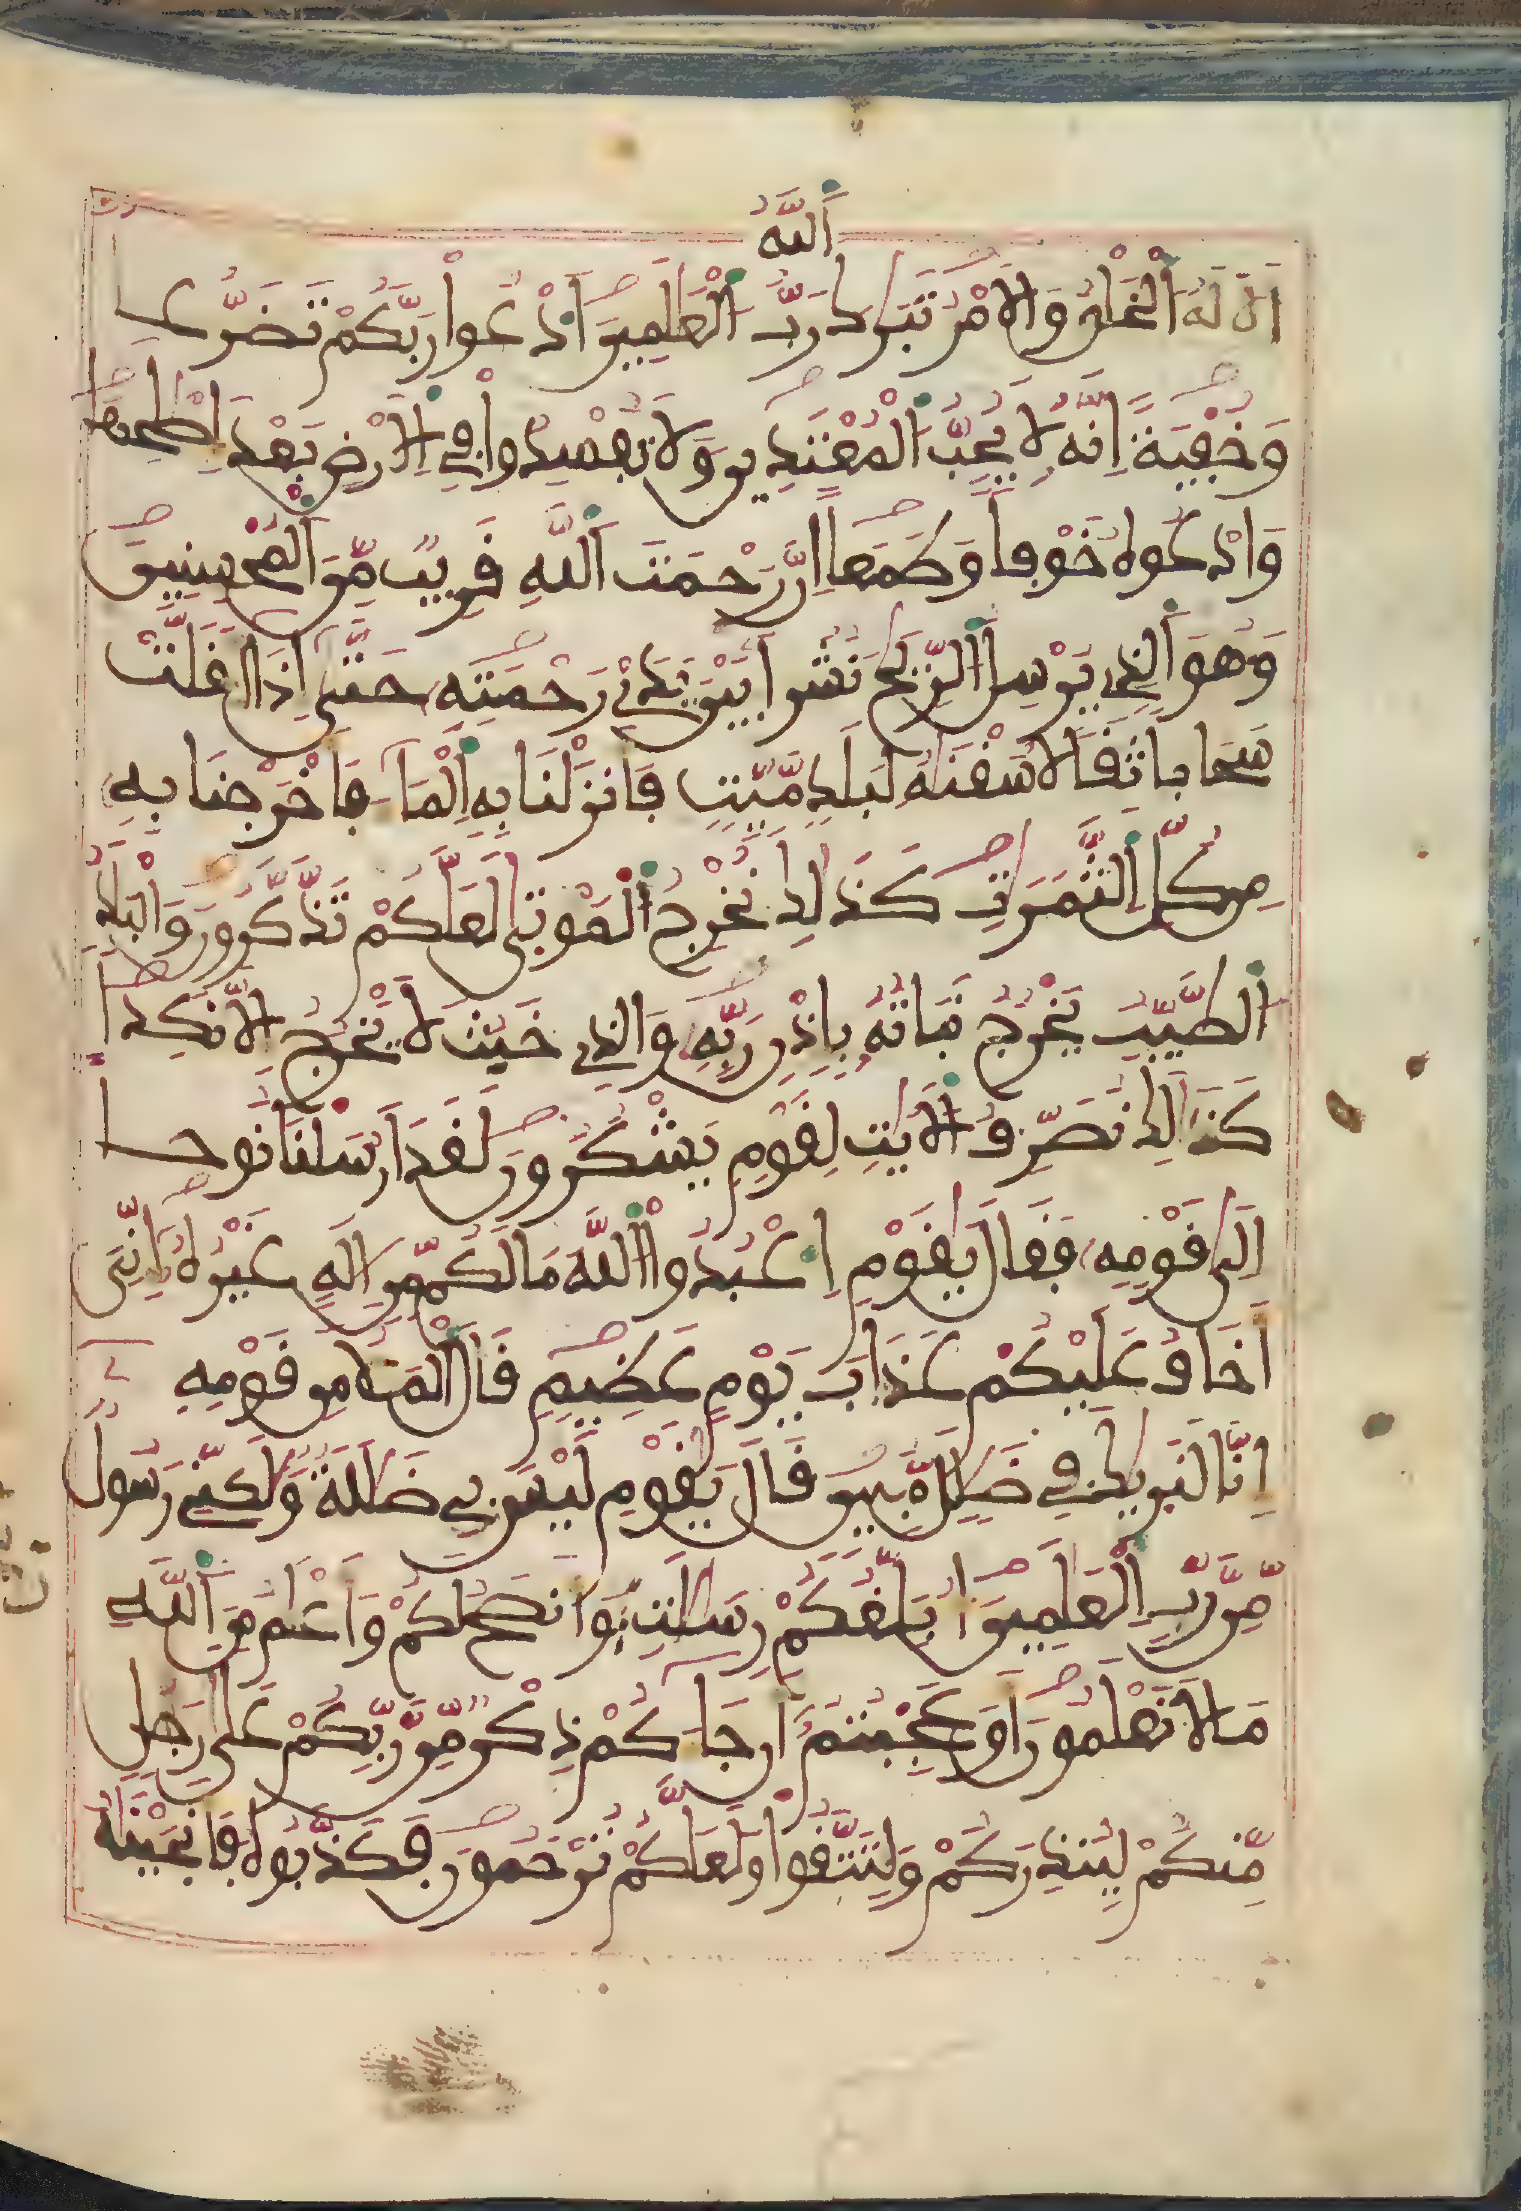 اَللَّهُ
اَلَا لَهُ اُ۬لْخَلْقُ وَالَامْرُ تَبَٰرَكَ رَبُّ اُ۬لْعَٰلَمِينَ اَ۟دْعُواْ رَبَّكُمْ تَضَرُّعا
وَخُفْيَةً اِنَّهُ لَا يُحِبُّ اُ۬لْمُعْتَدِينَ وَلَا تُفْسِدُواْ فِي اِ۬لَارْضِ بَعْدَ إِصْلَٰحِهَا
وَادْعُوهُ خَوْفاً وَطَمَعاً اِنَّ رَحْمَتَ اَ۬للَّهِ قَرِيبٌ مِّنَ اَ۬لْمُحْسِنِينَ
وَهُوَ اَ۬لذِے يُرْسِلُ اُ۬لرِّيَٰحَ نُشُراً بَيْنَ يَدَےْ رَحْمَتِهِ حَتَّىٰ إِذَا أَقَلَّتْ
سَحَاباً ثِقَالاً سُقْنَٰهُ لِبَلَدٍ مَّيِّتٍ فَأَنزَلْنَا بِهِ اِ۬لْمَاءَ فَأَخْرَجْنَا بِهِ
مِن كُلِّ اِ۬لثَّمَرَٰتِ كَذَٰلِكَ نُخْرِجُ اُ۬لْمَوْتَىٰ لَعَلَّكُمْ تَذَّكَّرُونَ وَالْبَلَدُ
اُ۬لطَّيِّبُ يَخْرُجُ نَبَاتُهُ بِإِذْنِ رَبِّهِ وَالذِے خَبُثَ لَا يَخْرُجُ إِلَّا نَكِداً
كَذَٰلِكَ نُصَرِّفُ اُ۬لَايَٰتِ لِقَوْمٍ يَشْكُرُونَ لَقَدَ اَرْسَلْنَا نُوحاً
اِلَىٰ قَوْمِهِ فَقَالَ يَٰقَوْمِ اِ۟عْبُدُواْ اُ۬للَّهَ مَا لَكُم مِّنِ اِلَٰهٍ غَيْرُهُ إِنِّيَ
أَخَافُ عَلَيْكُمْ عَذَابَ يَوْمٍ عَظِيمٍ قَالَ اَ۬لْمَلَأُ مِن قَوْمِهِ
إِنَّا لَنَرَيٰكَ فِي ضَلَٰلٍ مُّبِينٍ قَالَ يَٰقَوْمِ لَيْسَ بِي ضَلَٰلَةٌ وَلَٰكِنِّي رَسُولٌ
مِّن رَّبِّ اِ۬لْعَٰلَمِينَ أُبَلِّغُكُمْ رِسَٰلَٰتِ رَبِّي وَأَنصَحُ لَكُمْ وَأَعْلَمُ مِنَ اَ۬للَّهِ
مَا لَا تَعْلَمُونَ أَوَعَجِبْتُمُ أَن جَاءَكُمْ ذِكْرٌ مِّن رَّبِّكُمْ عَلَىٰ رَجُلٍ
مِّنكُمْ لِيُنذِرَكُمْ وَلِتَتَّقُواْ وَلَعَلَّكُمْ تُرْحَمُونَ فَكَذَّبُوهُ فَأَنجَيْنَٰهُ